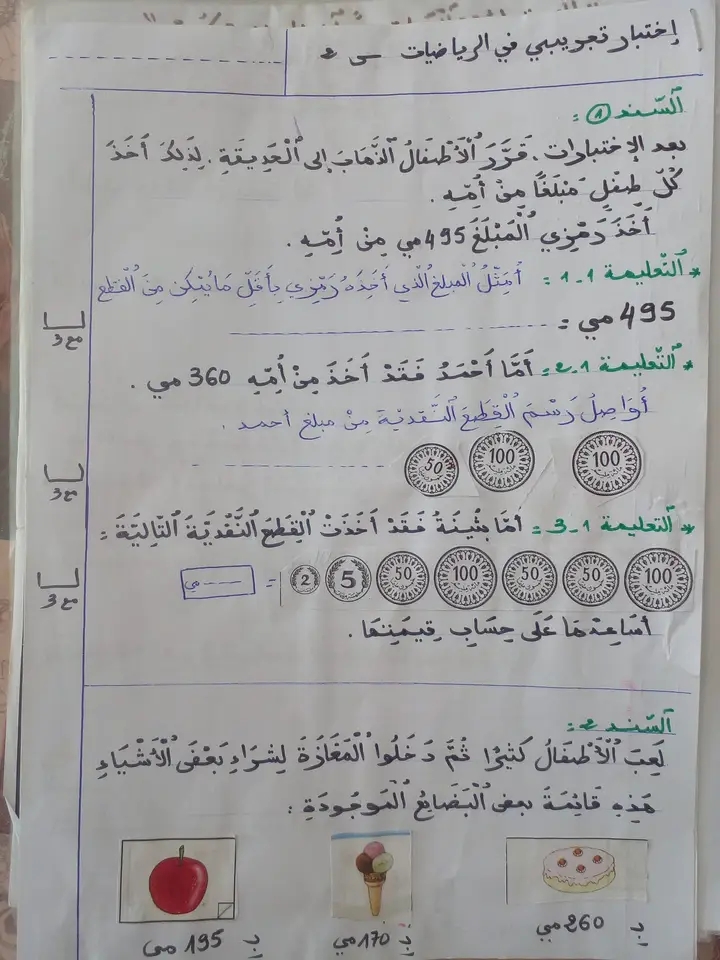 إختبار تجريبي في الرياضيات س 2
السّند 1:
بعد الإختبارات، قَرَّرَ الْأَطْفَالُ الذَّهَابَ إلى الْحَدِيقَةِ. لِذَلِكَ أَخَذَ
كُلّ طِفْلٍ مَبْلَغًا مِنْ أُمِّهِ.
أَخَذَ رَمْزِي الْمَبْلَغَ 495 مي مِنْ أُمِّهِ.
* التّعليمة 1-1: أُمَثِّلُ الْمبلغ الَّذي أَخَذَهُ رَمْزِي بِأَقَلّ مَا يُمْكِن مِنَ الْقطع
495 مي =
مع 3
* التّعليمة 1-2: أَمَّا أَحْمَدُ فَقَدْ أَخَذَ مِنْ أُمِّهِ 360 مي.
أُوَاصِلُ رَسْمَ الْقِطَعِ النَّقديّة مِنْ مبلغ أحمد.
100 100 50
مع 3
* التّعليمة 1-3: أمَّا بثينة فَقَدْ أَخَذَتْ الْقِطَعَ النَّقْدِيَّةَ التَّالِيَّةَ:
100 50 50 100 50 5 2 = مي
مع 3
أُسَاعِدُهَا عَلَى حِسَابِ قِيمَتِهَا.
السّند 2:
لَعِبَ الْأَطْفَالُ كَثِيرًا ثُمَّ دَخَلُوا الْمَغَازَةَ لِشِرَاءِ بَعْضَ الْأَشْيَاءِ
هَذِهِ قَائِمَةُ بعض الْبَضَائِعِ الْمَوجُودَةِ:
بـ 260 مي بـ 170 مي بـ 195 مي